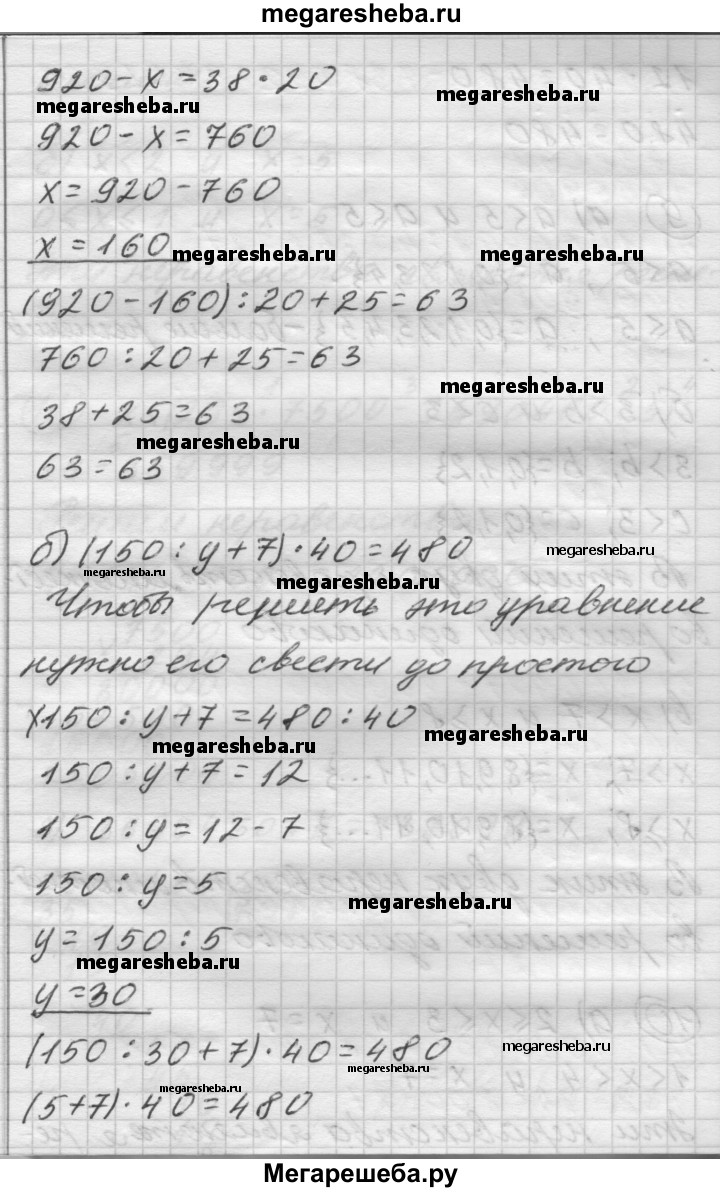 megaresheba.ru
920 - x = 38 · 20
megaresheba.ru
megaresheba.ru
920 - x = 760
x = 920 - 760
x = 160
megaresheba.ru
megaresheba.ru
(920 - 160) : 20 + 25 = 63
760 : 20 + 25 = 63
megaresheba.ru
38 + 25 = 63
megaresheba.ru
63 = 63
б) (150 : y + 7) · 40 = 480
megaresheba.ru
megaresheba.ru
megaresheba.ru
Чтобы решить это уравнение
нужно его свести до простого
150 : y + 7 = 480 : 40
megaresheba.ru
megaresheba.ru
150 : y + 7 = 12
150 : y = 12 - 7
150 : y = 5
megaresheba.ru
y = 150 : 5
megaresheba.ru
y = 30
(150 : 30 + 7) · 40 = 480
megaresheba.ru
megaresheba.ru
megaresheba.ru
(5 + 7) · 40 = 480
Мегарешеба.ру